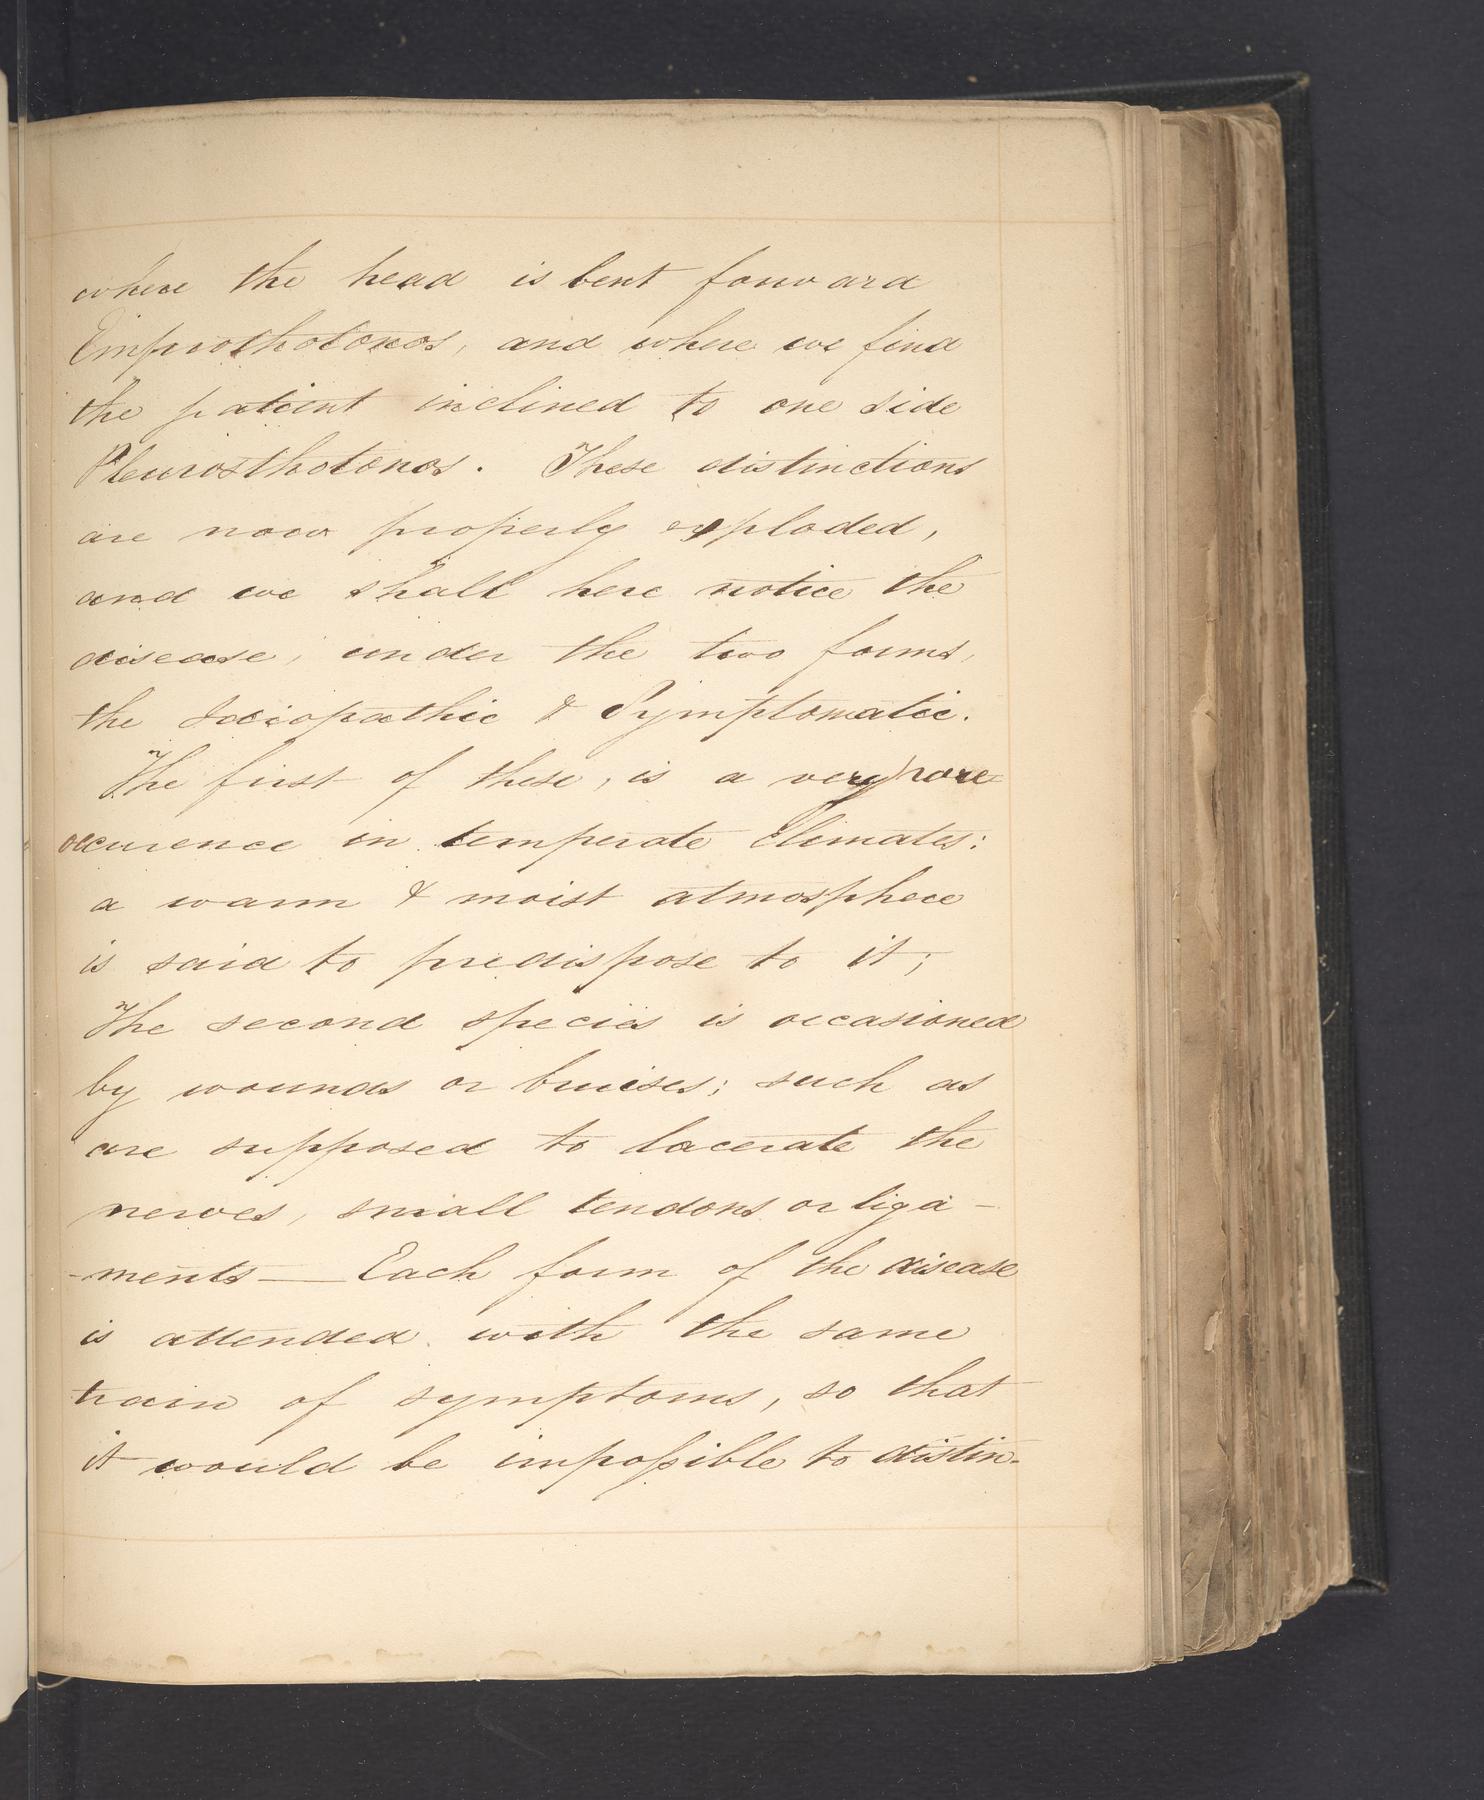 where the head is bent forward
Emprosthotonos, and where we find
the patient inclined to one side
Pleurosthotonos. These distinctions
are now properly exploded,
and we shall here notice the
disease, under the two forms,
the Idiopathic & Symptomatic.
The first of these, is a very rare
occurence in temperate Climates:
a warm & moist atmosphere
is said to predispose to it;
The second species is occasioned
by wounds or bruises; such as
are supposed to lacerate the
nerves, small tendons or liga-
-ments — Each form of the disease
is attended with the same
train of symptoms, so that
it would be impossible to distin-